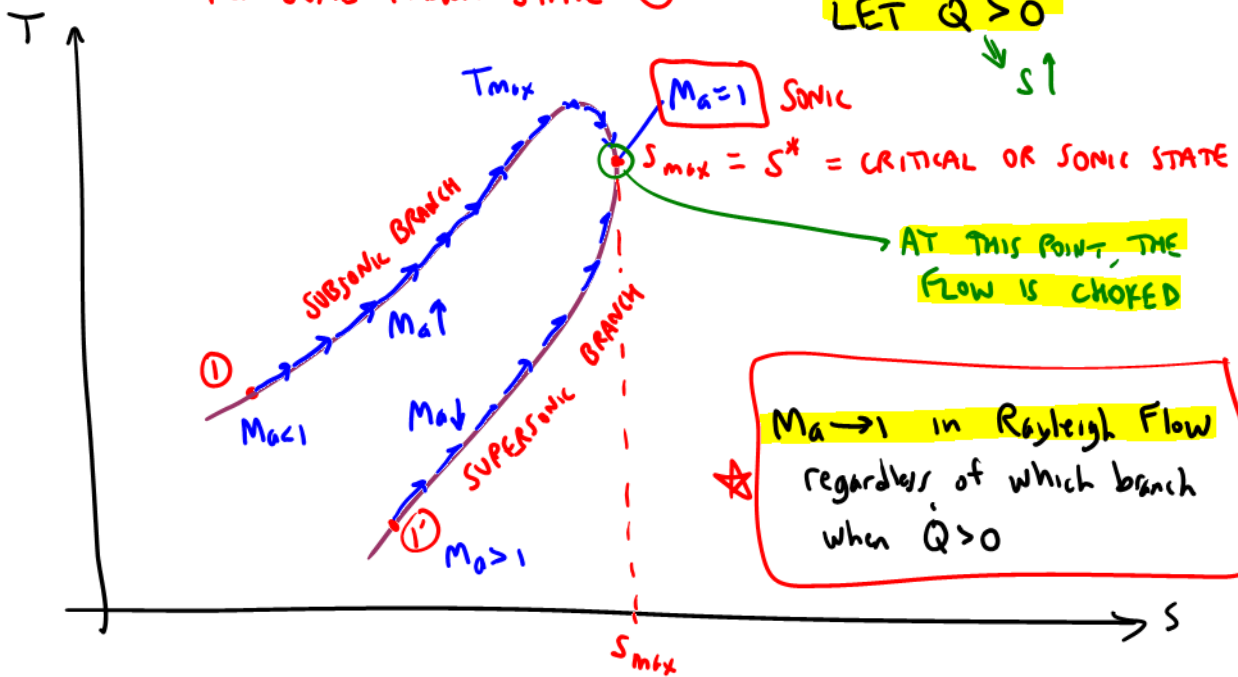 LET Q̇ > 0
S↑
T
Tmax
Ma=1
SONIC
Smax = S* = CRITICAL OR SONIC STATE
AT THIS POINT, THE
FLOW IS CHOKED
SUBSONIC BRANCH
Ma↑
1
Ma<1
Ma↓
SUPERSONIC BRANCH
1'
Ma>1
Ma→1 in Rayleigh Flow
regardless of which branch
when Q̇>0
S
Smax